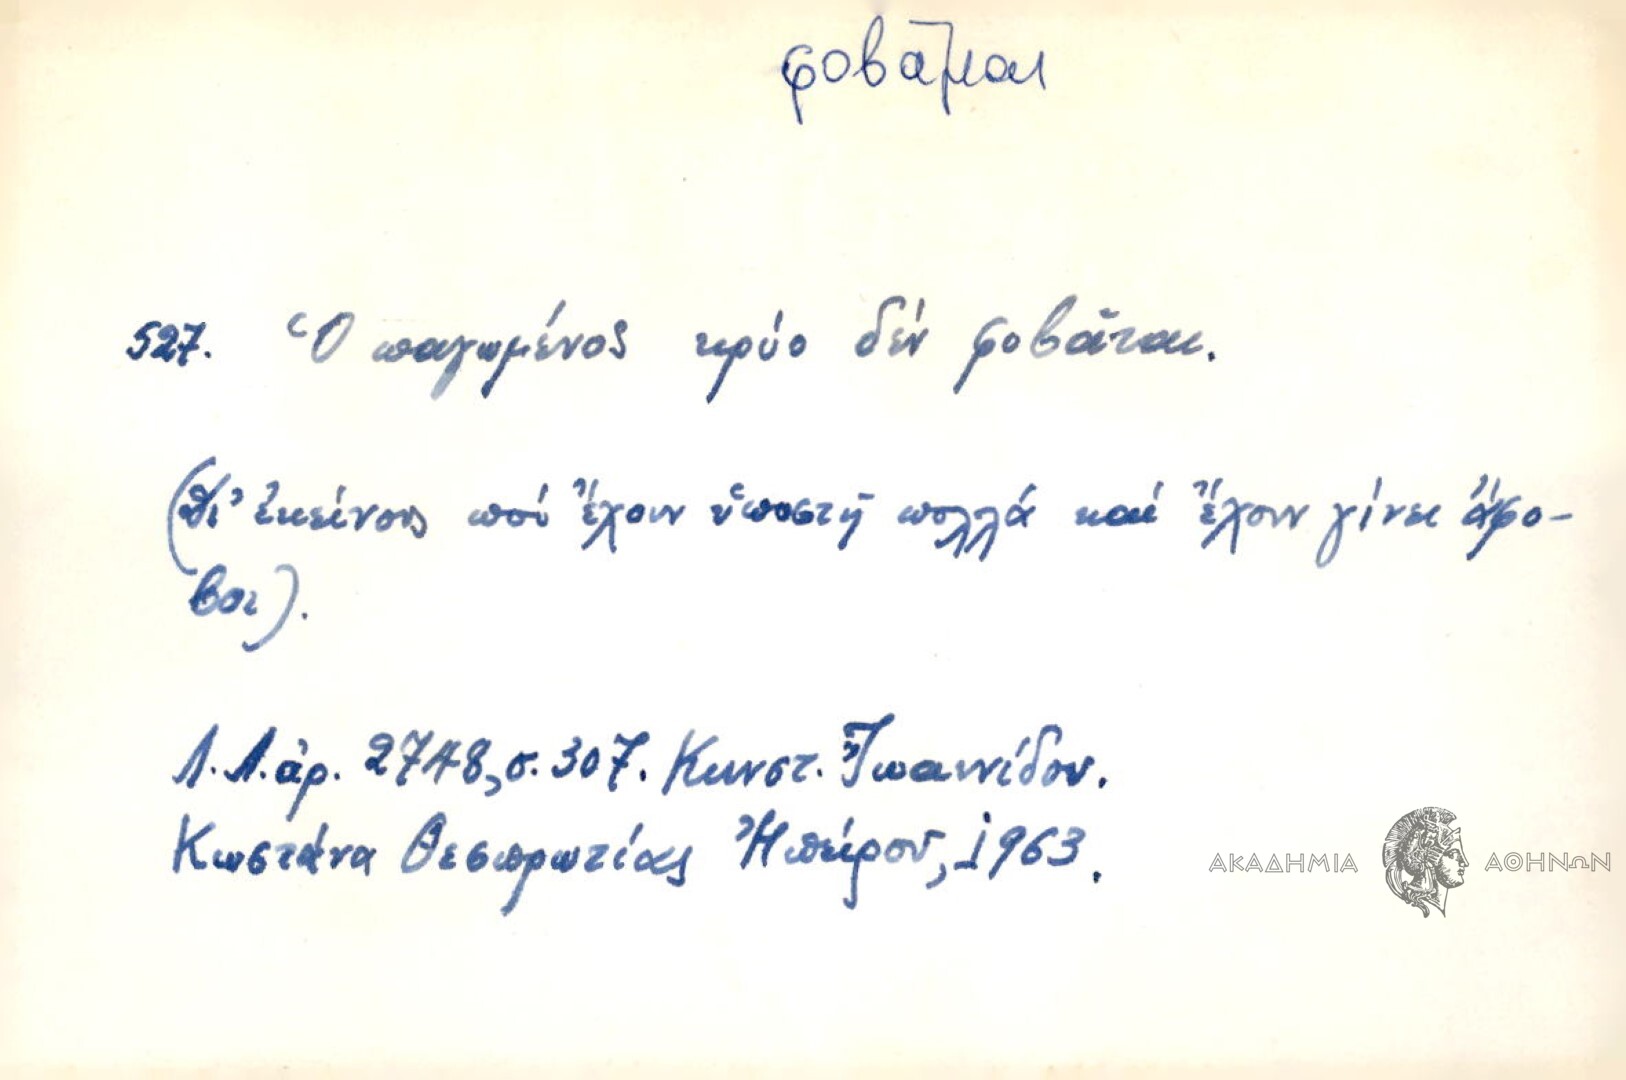 φοβᾶμαι
527. Ὁ παγωμένος κρύο δέν φοβᾶται.
(Δι' ἐκείνους πού ἔχουν ὑποστῆ πολλά καί ἔχουν γίνει ἄφο-
βοι).
Λ.Λ.ἀρ. 2748, σ. 307. Κωνστ. Ἰωαννίδου.
Κωστάνα Θεσπρωτίας Ἠπείρου, 1963.
ΑΚΑΔΗΜΙΑ ΑΘΗΝΩΝ